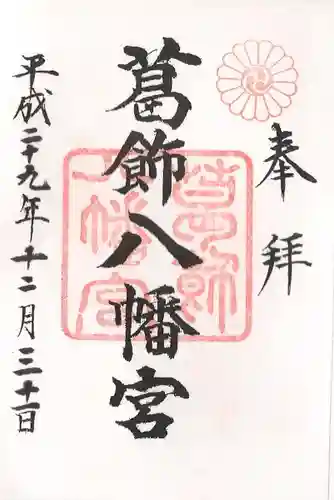 奉拝
葛飾八幡宮
平成二十九年十二月三十一日
葛飾
八幡宮